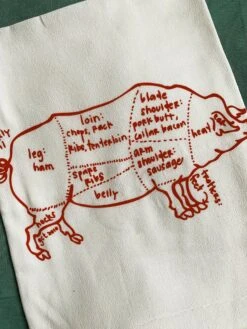 blade
shoulder:
pork butt,
collar bacon
loin:
chops, rack
ribs, tenderloin,
leg:
ham
head
spare
ribs
arm
shoulder:
sausage
belly
hocks
trotters